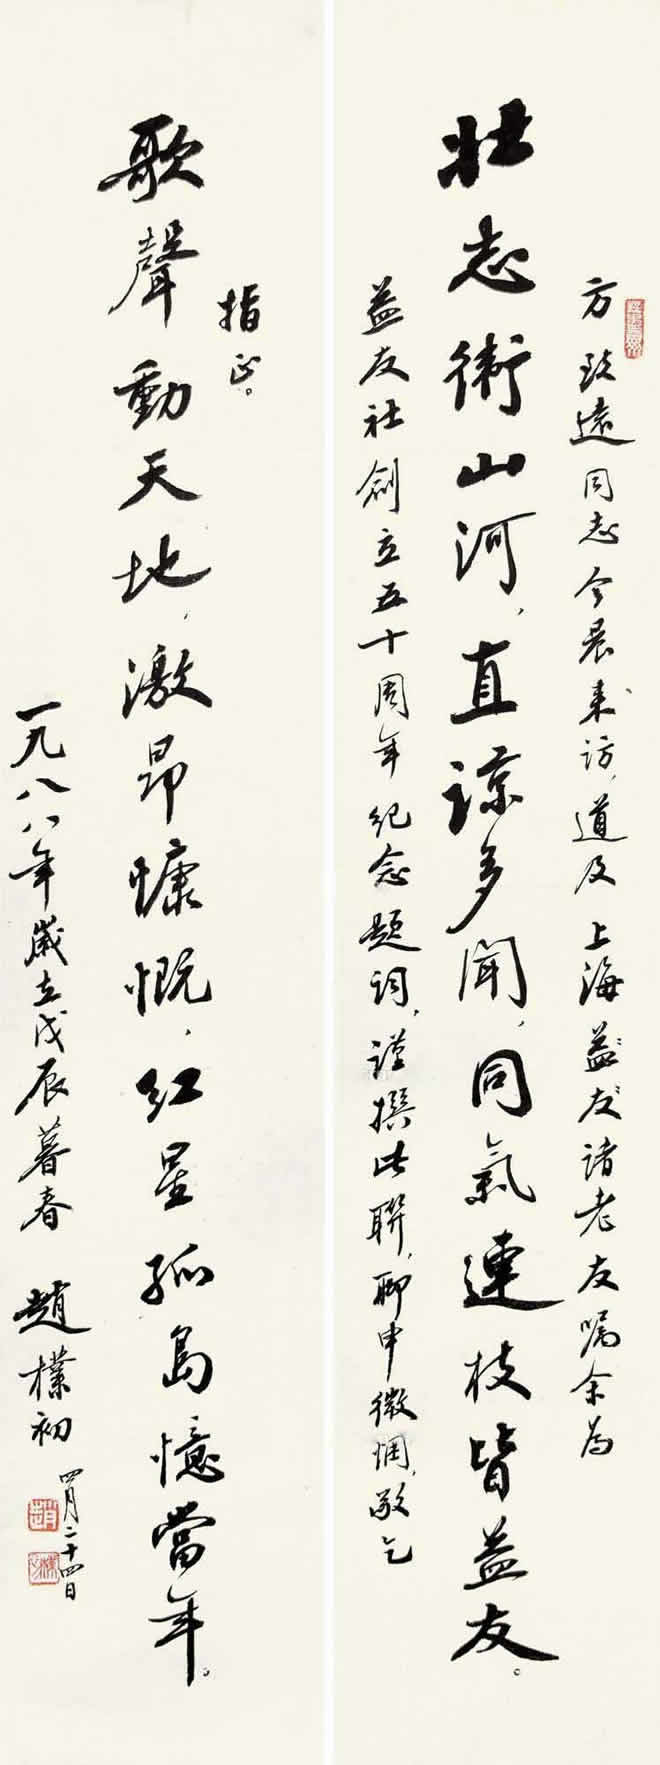 方致遠同志今晨来访，道及上海益友诸老友嘱余为
壮志衛山河，直諒多聞，同氣連枝皆益友。
益友社创立五十周年纪念题词，谨撰此联，聊申微悃，敬乞
指正。
歌聲動天地，激昂慷慨，红星孤島憶當年。
一九八八年歲在戊辰暮春 趙樸初
四月二十四日